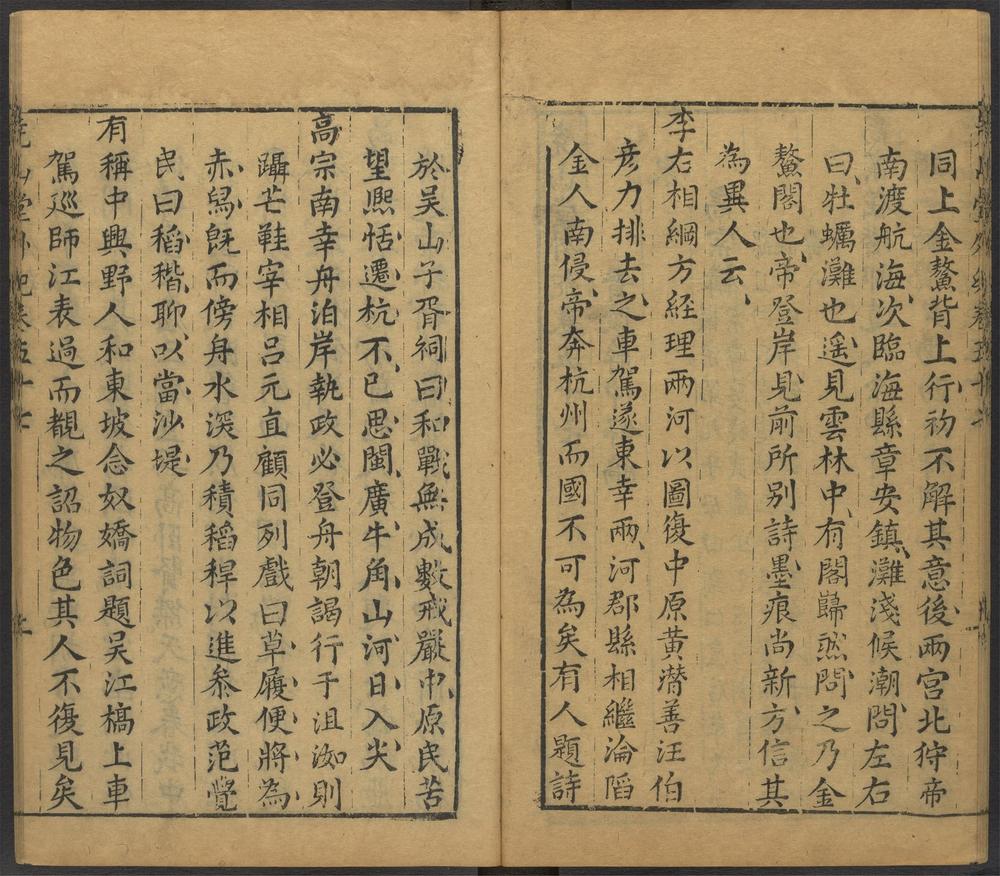 同上金鰲背上行初不解其意後兩宮北狩帝
南渡航海次臨海縣章安鎮灘淺候潮問左右
曰牡蠣灘也遙見雲林中有閣巋然問之乃金
鰲閣也帝登岸見前所別詩墨痕尚新方信其
為異人云
李右相綱方經理兩河以圖復中原黃潛善汪伯
彥力排去之車駕遂東幸兩河郡縣相繼淪陷
金人南侵帝奔杭州而國不可為矣有人題詩
於吳山子胥祠曰和戰無成數戒嚴中原民苦
望熙恬遷杭不已思閩廣牛角山河日入尖
高宗南幸舟泊岸執政必登舟朝謁行于沮洳則
躡芒鞋宰相呂元直顧同列戲曰草履便將為
赤舄既而傍舟水深乃積稻稈以進參政范覺
民曰稻稭聊以當沙堤
有稱中興野人和東坡念奴嬌詞題吳江橋上車
駕廵師江表過而覩之詔物色其人不復見矣
堯山堂外紀卷五十七